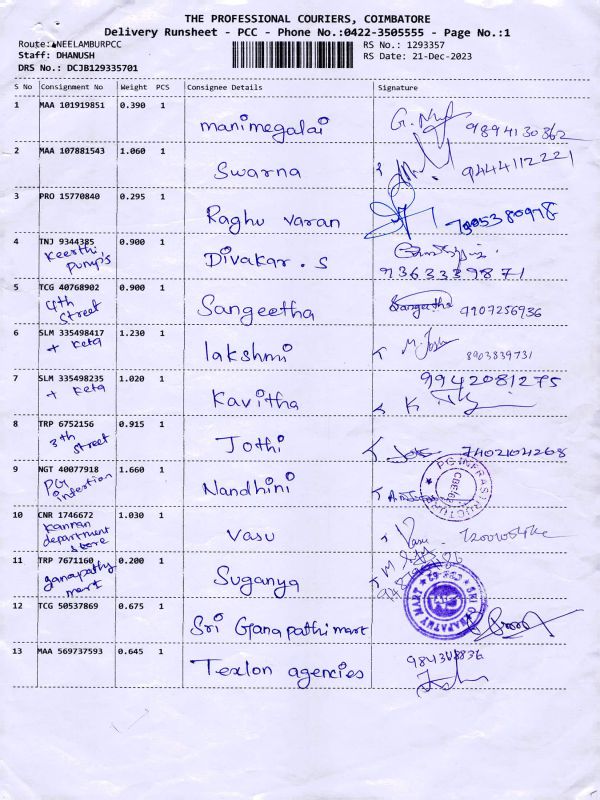 THE PROFESSIONAL COURIERS, COIMBATORE
Delivery Runsheet - PCC - Phone No.:0422-3505555 - Page No.:1
Route: NEELAMBURPCC
RS No.: 1293357
Staff: DHANUSH
RS Date: 21-Dec-2023
DRS No.: DCJB129335701
S No Consignment No Weight PCS Consignee Details Signature
1 MAA 101919851 0.390 1
manimegalai 9894130362
2 MAA 107881543 1.060 1
Swarna 9444112221
3 PRO 15770840 0.295 1
Raghu varan 7005380978
4 TNJ 9344385 0.900 1
Keerthi
pump's
Divakar . S
9363339871
5 TCG 40768902 0.900 1
4th
street
Sangeetha Sangeetha 9907256936
6 SLM 335498417 1.230 1
+ Keta
lakshmi 8903839731
7 SLM 335498235 1.020 1
+ Keta
Kavitha
9942081275
8 TRP 6752156 0.915 1
3th street
Jothi 7402104268
9 NGT 40077918 1.660 1
PG
Nandhini
PG INFRASTRUCTUR
10 CNR 1746672 1.030 1
Kannan
department
store
Vasu Vasu
11 TRP 7671160 0.200 1
ganapathy
mart
Suganya
SRI GANAPATHY MART
12 TCG 50537869 0.675 1
Sri Ganapathi mart
13 MAA 569737593 0.645 1
Texlon agencies